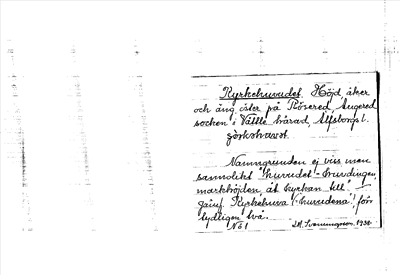 Kyrkehuvudet. Höjd, åker
och äng öster på Rösered, Angered
socken i Vättle härad, Älfsborgs l.
Namngrunden ej viss men
sannolikt "huvudet"
markhöjden åt kyrkan till.
jämf. Kyrkehuva "huvudena", för
tydligen två.
No 1 1930